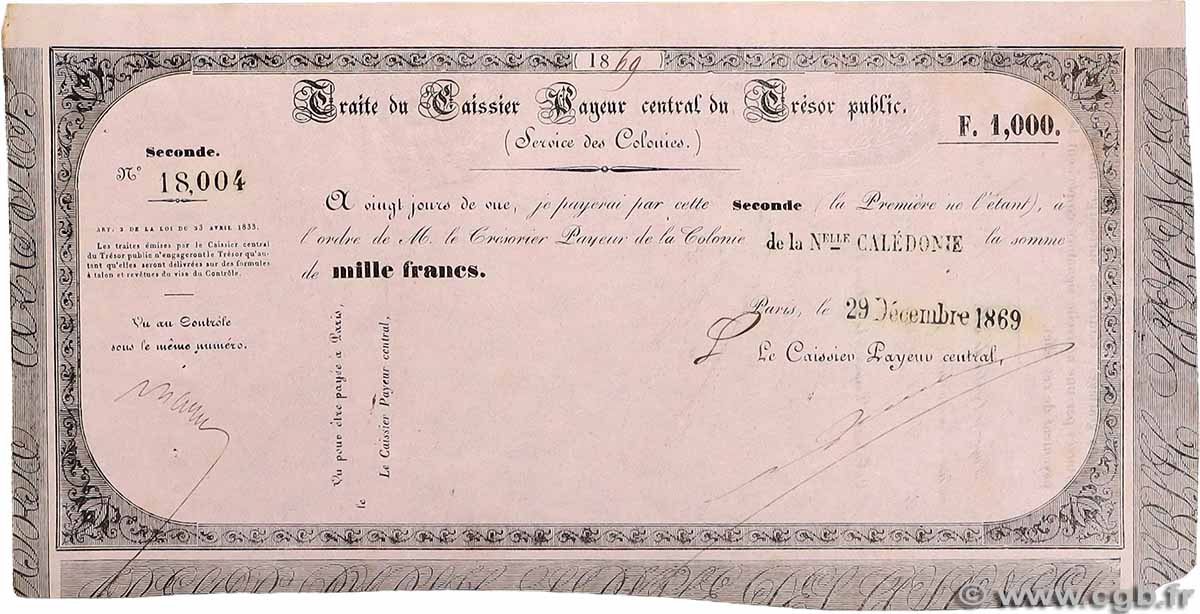 ( 1869 )
Traite du Caissier Payeur central du Trésor public.
(Service des Colonies.)
F. 1,000.
Seconde.
N° 18,004
ART. 2 DE LA LOI DU 23 AVRIL 1833.
Les traites émises par le Caissier central
du Trésor public n'engageront le Trésor qu'au-
tant qu'elles seront délivrées sur des formules
à talon et revêtues du visa du Contrôle.
Vu au Contrôle
sous le même numéro.
A vingt jours de vue, je payerai par cette Seconde (la Première ne l'étant), à
l'ordre de M. le Trésorier Payeur de la Colonie de la NELLE CALÉDONIE la somme
de mille francs.
Paris, le 29 Décembre 1869
P
Le Caissier Payeur central,
Vu pour être payée à Paris,
le
Le Caissier Payeur central,
© www.cgb.fr